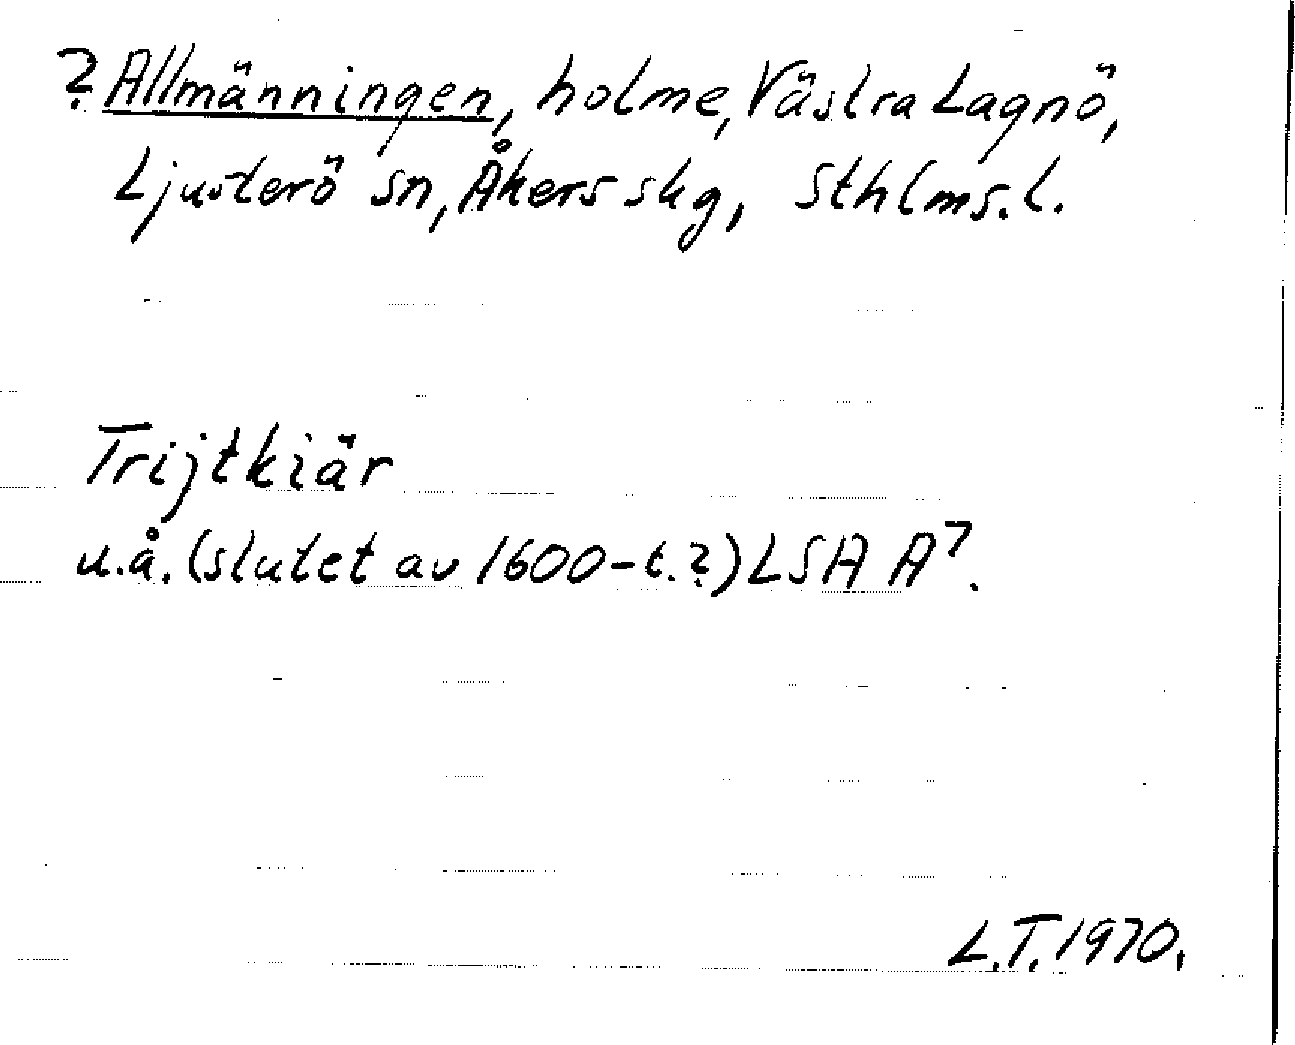 ? Allmänningen, holme, Västra Lagnö,
Ljusterö sn, Åkers skg, Sthlms. l.
Trijtkiär
u.å. (slutet av 1600-t.?) LSA A7.
L.T. 1970.